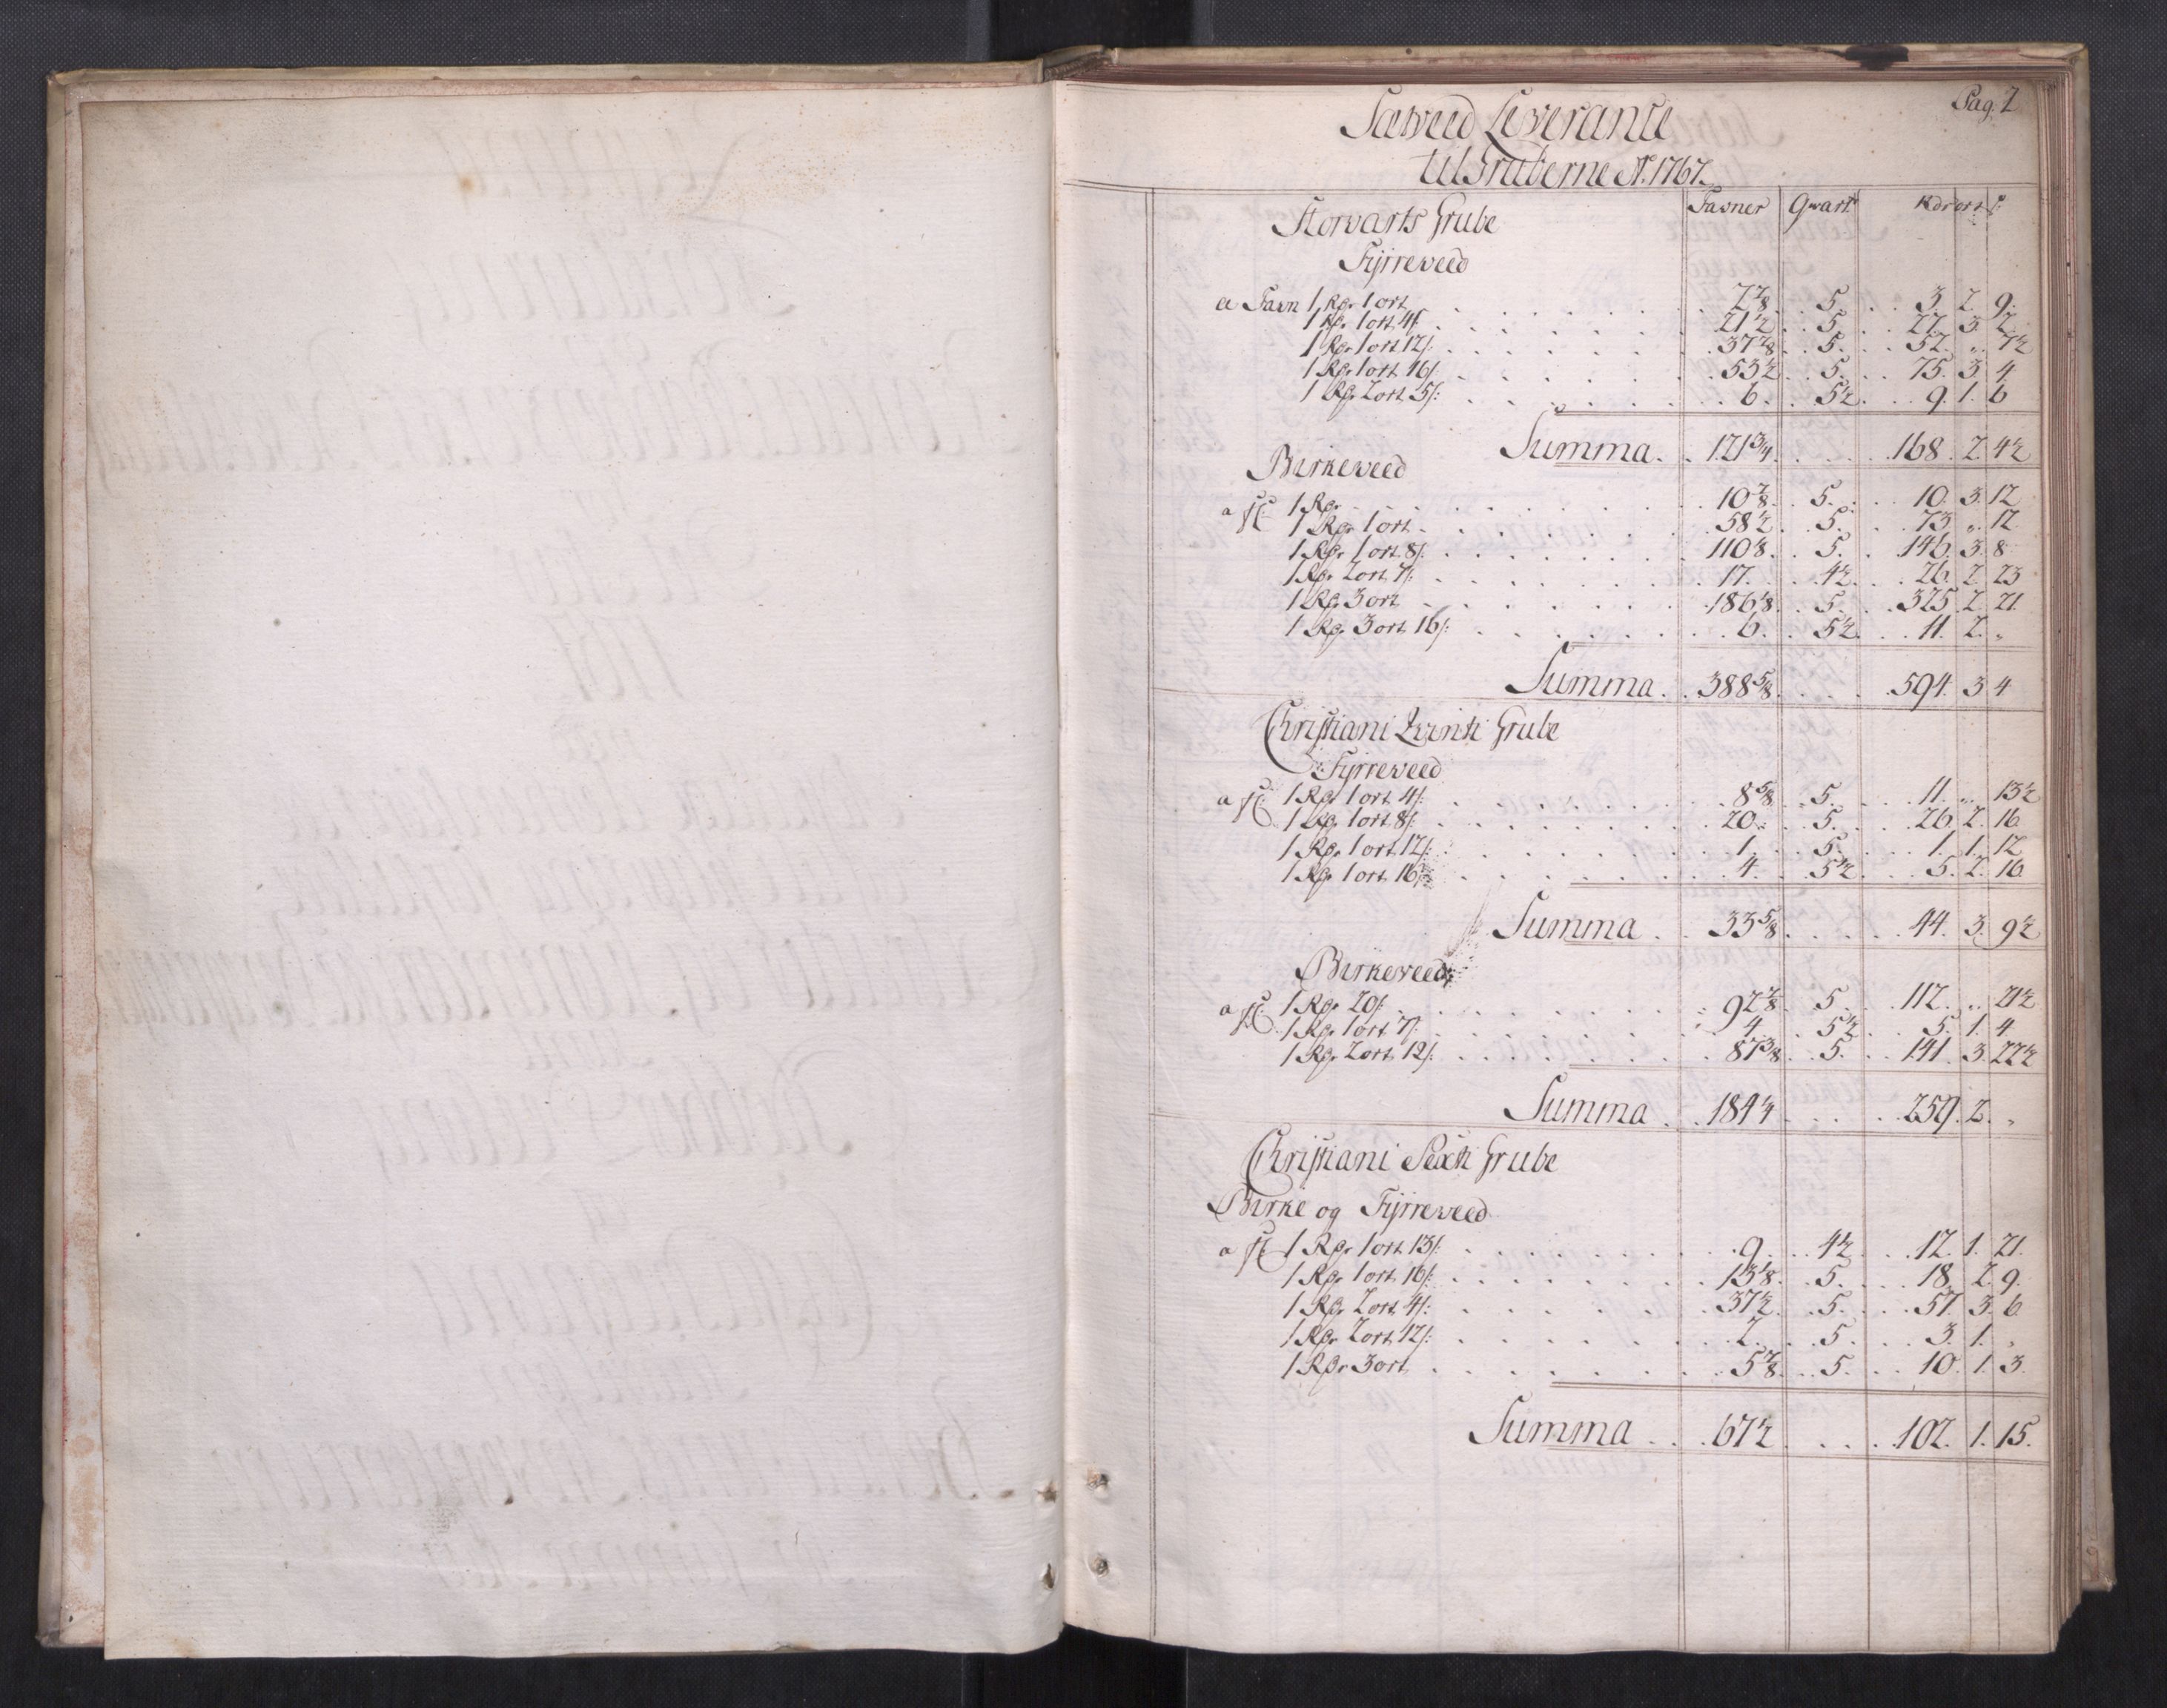 Pag. 2
Sætveed Leverance
til Gruberne Ao. 1767.
Favner Qvart Rdr ort ß:
Storvarts Grube
Fyrreveed
a Favn 1 Rdr 1 ort . . . 2 7/8 . 5 . 3. 2. 9.
1 Rdr 1 ort 4 ß: . . . 21 1/2 . 5. 27. 3. 2.
1 Rdr 1 ort 12 ß: . . . 37 7/8 . 5. 52. „ 7 1/2
1 Rdr 1 ort 16 ß: . . . 53 1/2 . 5. 75. 3. 4
1 Rdr 2 ort 5 ß: . . . 6. 5 1/2. 9. 1. 6
Summa . . 121 3/4 . . . 168. 2. 4 1/2
Birkeveed
a f: 1 Rdr . . . 10 7/8 . 5. 10. 3. 12
1 Rdr 1 ort . . . 58 1/2 . 5. 73. „ 12
1 Rdr 1 ort 8 ß: . . . 110 1/8 . 5. 146. 3. 8
1 Rdr 2 ort 7 ß: . . . 17. 4 1/2. 26. 2. 23
1 Rdr 3 ort . . . 186 1/8 . 5. 325. 2. 21.
1 Rdr 3 ort 16 ß: . . . 6. 5 1/2. 11. 2. „
Summa . . 388 5/8 . . . 594. 3 4
Christiani Qvinti Grube
Fyrreveed
a f: 1 Rdr 1 ort 4 ß: . . . 8 5/8 . 5. 11. „ 13 1/2
1 Rdr 1 ort 8 ß: . . . 20. 5. 26. 2. 16
1 Rdr 1 ort 12 ß: . . . 1. 5. 1. 1. 12
1 Rdr 1 ort 16 ß: . . . 4. 5 1/2. 5. 2. 16
Summa . . 33 5/8 . . . 44. 3. 9 1/2
Birkeveed
a f: 1 Rdr 20 ß: . . . 92 7/8 . 5. 112. „ 21 1/2
1 Rdr 1 ort 7 ß: . . . 4. 5 1/2. 5. 1. 4
1 Rdr 2 ort 12 ß: . . . 87 3/8 . 5. 141. 3. 22 1/2
Summa . . 184 1/4 . . . 259. 2. „
Christiani Sexti Grube
Birke og Fyrreveed
a f: 1 Rdr 1 ort 13 ß: . . . 9. 4 1/2. 12. 1. 21.
1 Rdr 1 ort 16 ß: . . . 13 1/8. 5. 18. 2. 9.
1 Rdr 2 ort 4 ß: . . . 37 1/2. 5. 57 3. 6
1 Rdr 2 ort 12 ß: . . . 2. 5. 3. 1. „
1 Rdr 3 ort . . . 5 7/8. 5. 10. 1. 3.
Summa . . 67 1/2 . . . 102. 1. 15.